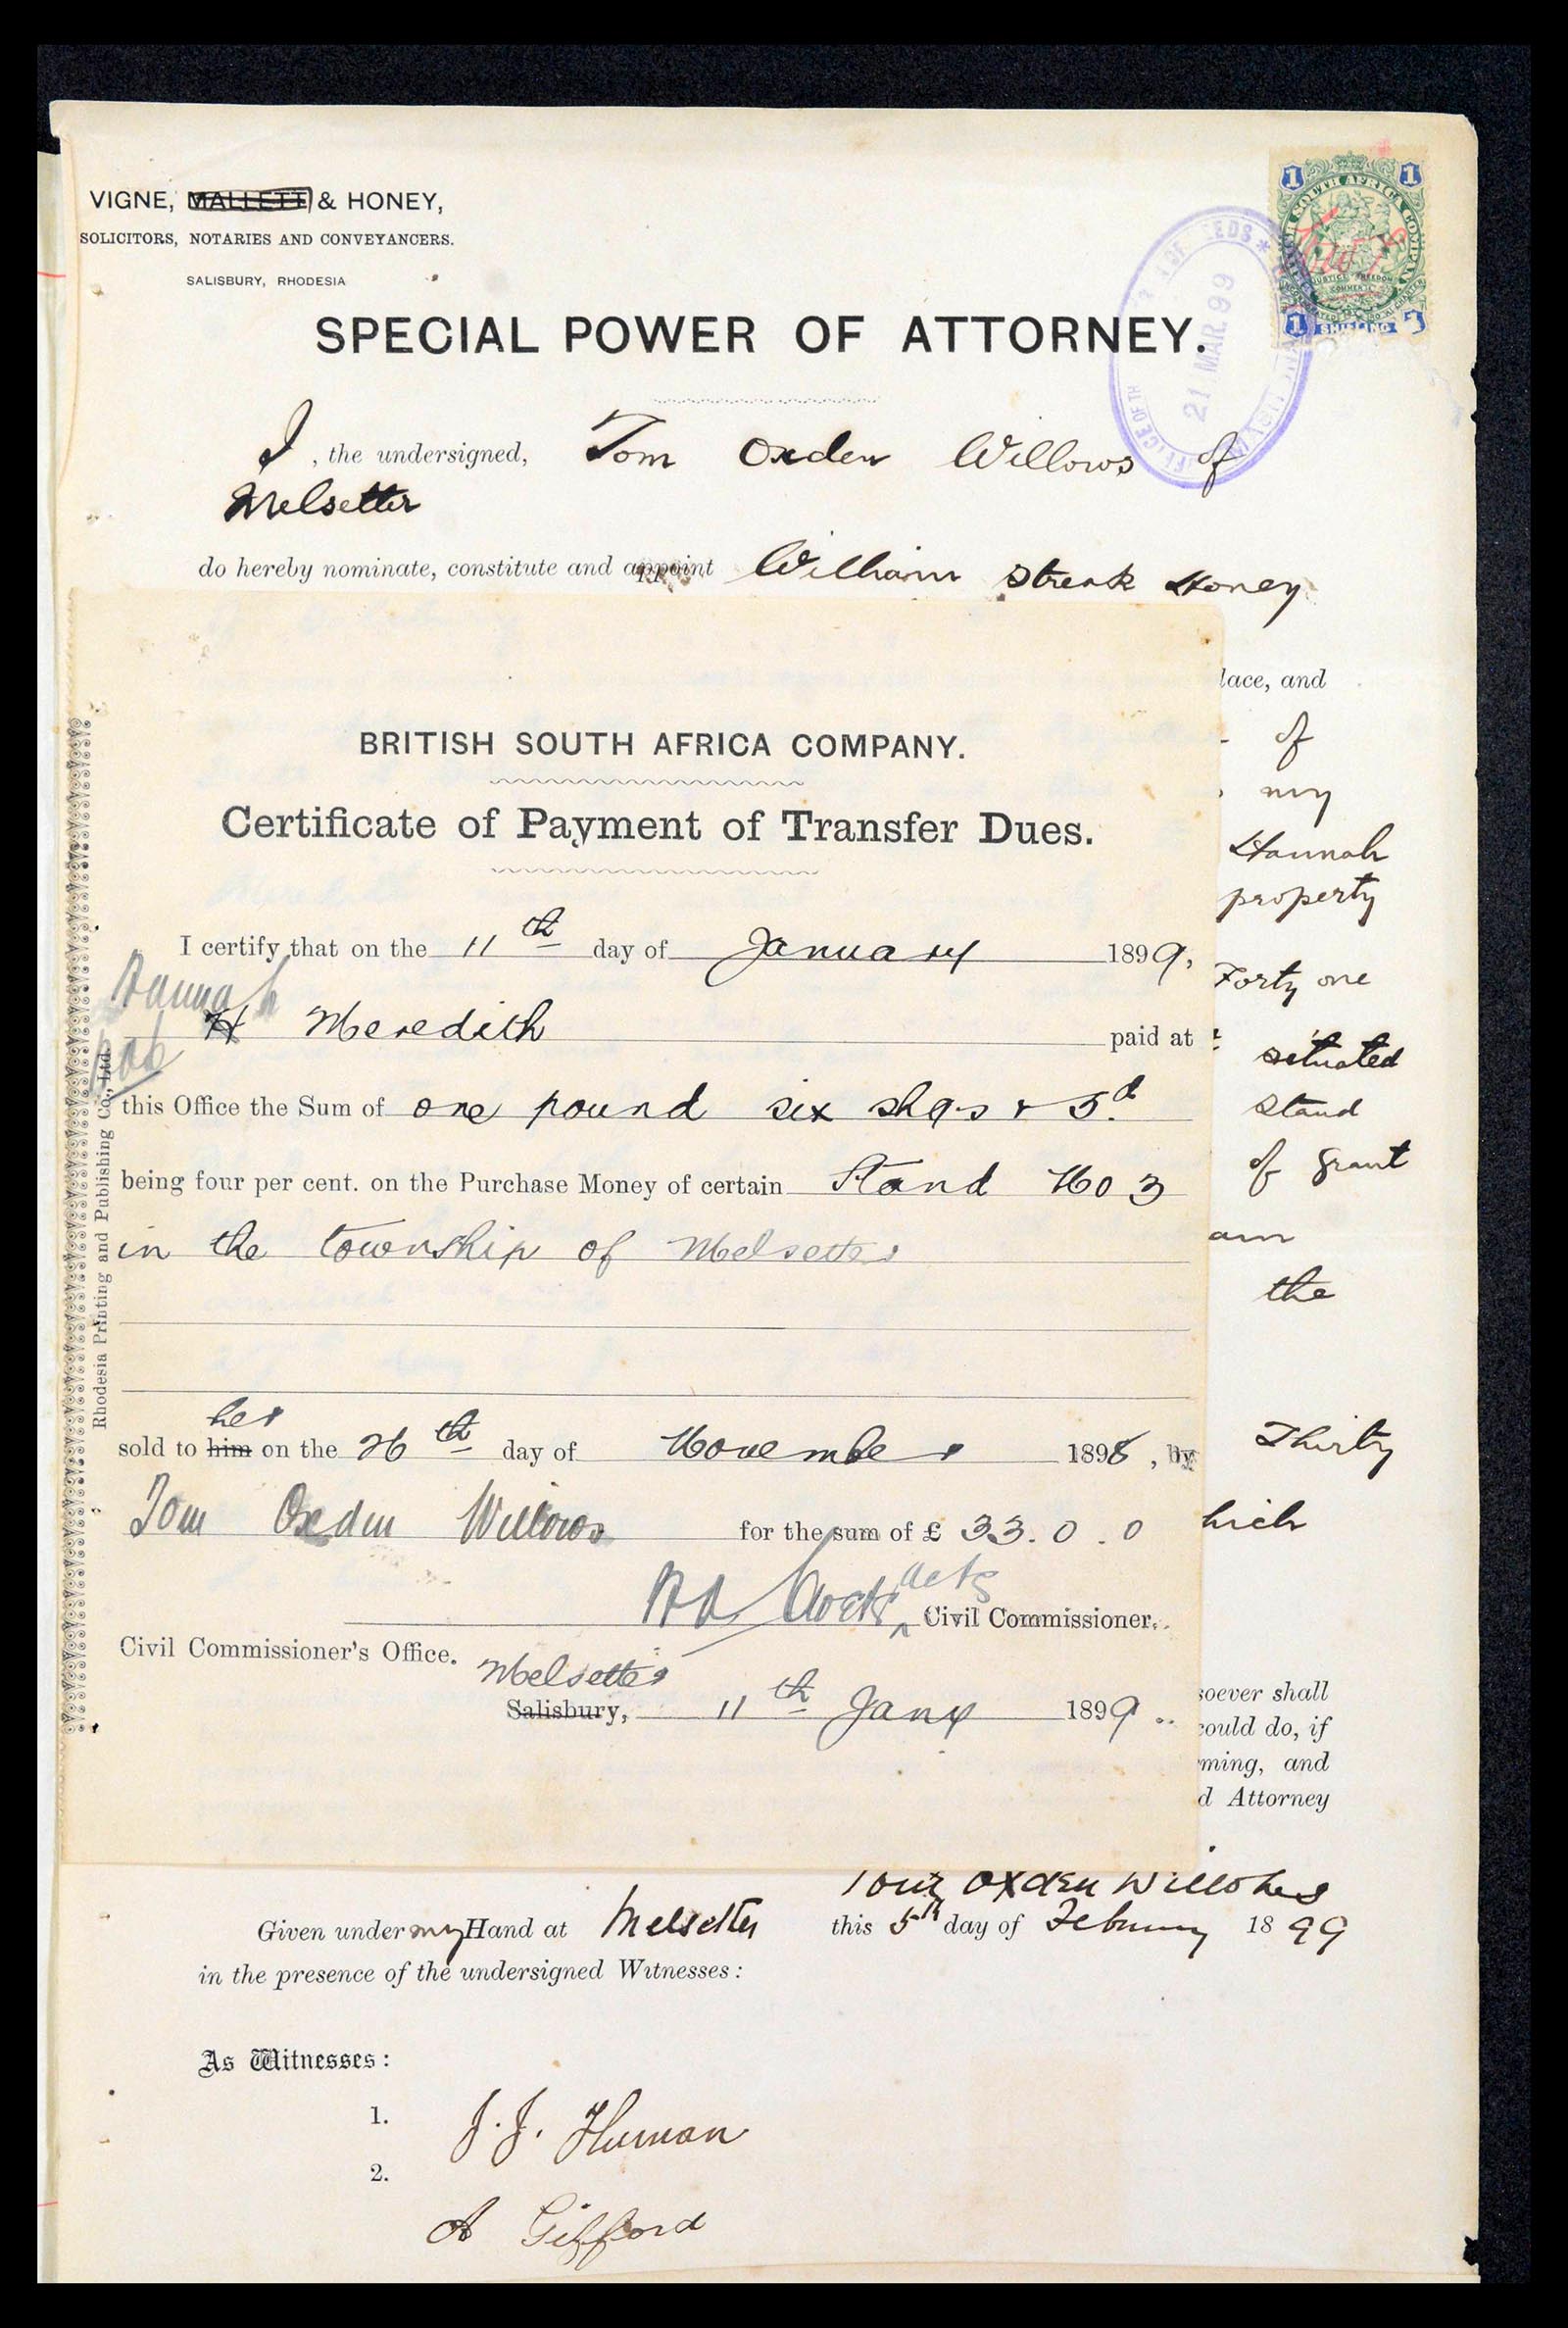 VIGNE, MALLETT & HONEY,
SOLICITORS, NOTARIES AND CONVEYANCERS.
SALISBURY, RHODESIA
SPECIAL POWER OF ATTORNEY.
21 MAR. 99
1 1
BRITISH SOUTH AFRICA COMPANY
JUSTICE FREEDOM
COMMERCE
1 SHILLING 1
I, the undersigned, Tom Oxden Willows of
Melsetter
do hereby nominate, constitute and appoint William Streak Honey
lace, and
of
my
Hannah
property
Forty one
situated
Stand
of grant
am
the
Thirty
hich
soever shall
could do, if
ming, and
d Attorney
BRITISH SOUTH AFRICA COMPANY.
Certificate of Payment of Transfer Dues.
I certify that on the 11th day of January 1899,
Hannah
H Meredith paid at
this Office the Sum of one pound six shgs & 5d
being four per cent. on the Purchase Money of certain Stand No 3
in the township of Melsetter
her
sold to him on the 26th day of November 1898, by
Tom Oxden Willows for the sum of £ 33.0.0
Civil Commissioner.
Civil Commissioner's Office.
Melsetter
Salisbury, 11th Jany 1899
Rhodesia Printing and Publishing Co., Ltd.
Tom Oxden Willows
Given under my Hand at Melsetter this 5th day of February 1899
in the presence of the undersigned Witnesses:
As Witnesses:
1. J. J. Human
2. A Gifford